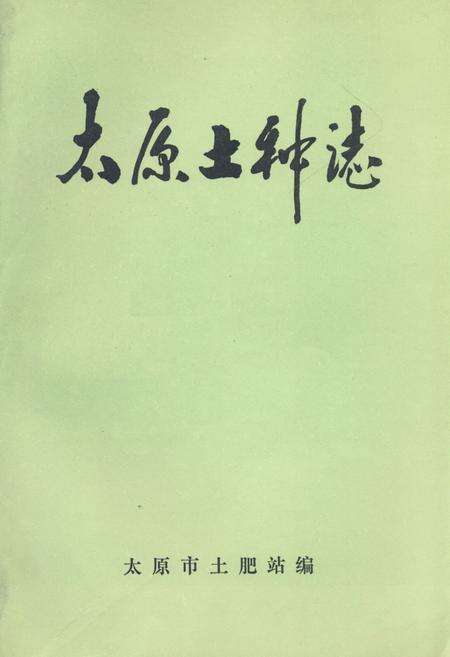 太原土种誌
太原市土肥站编